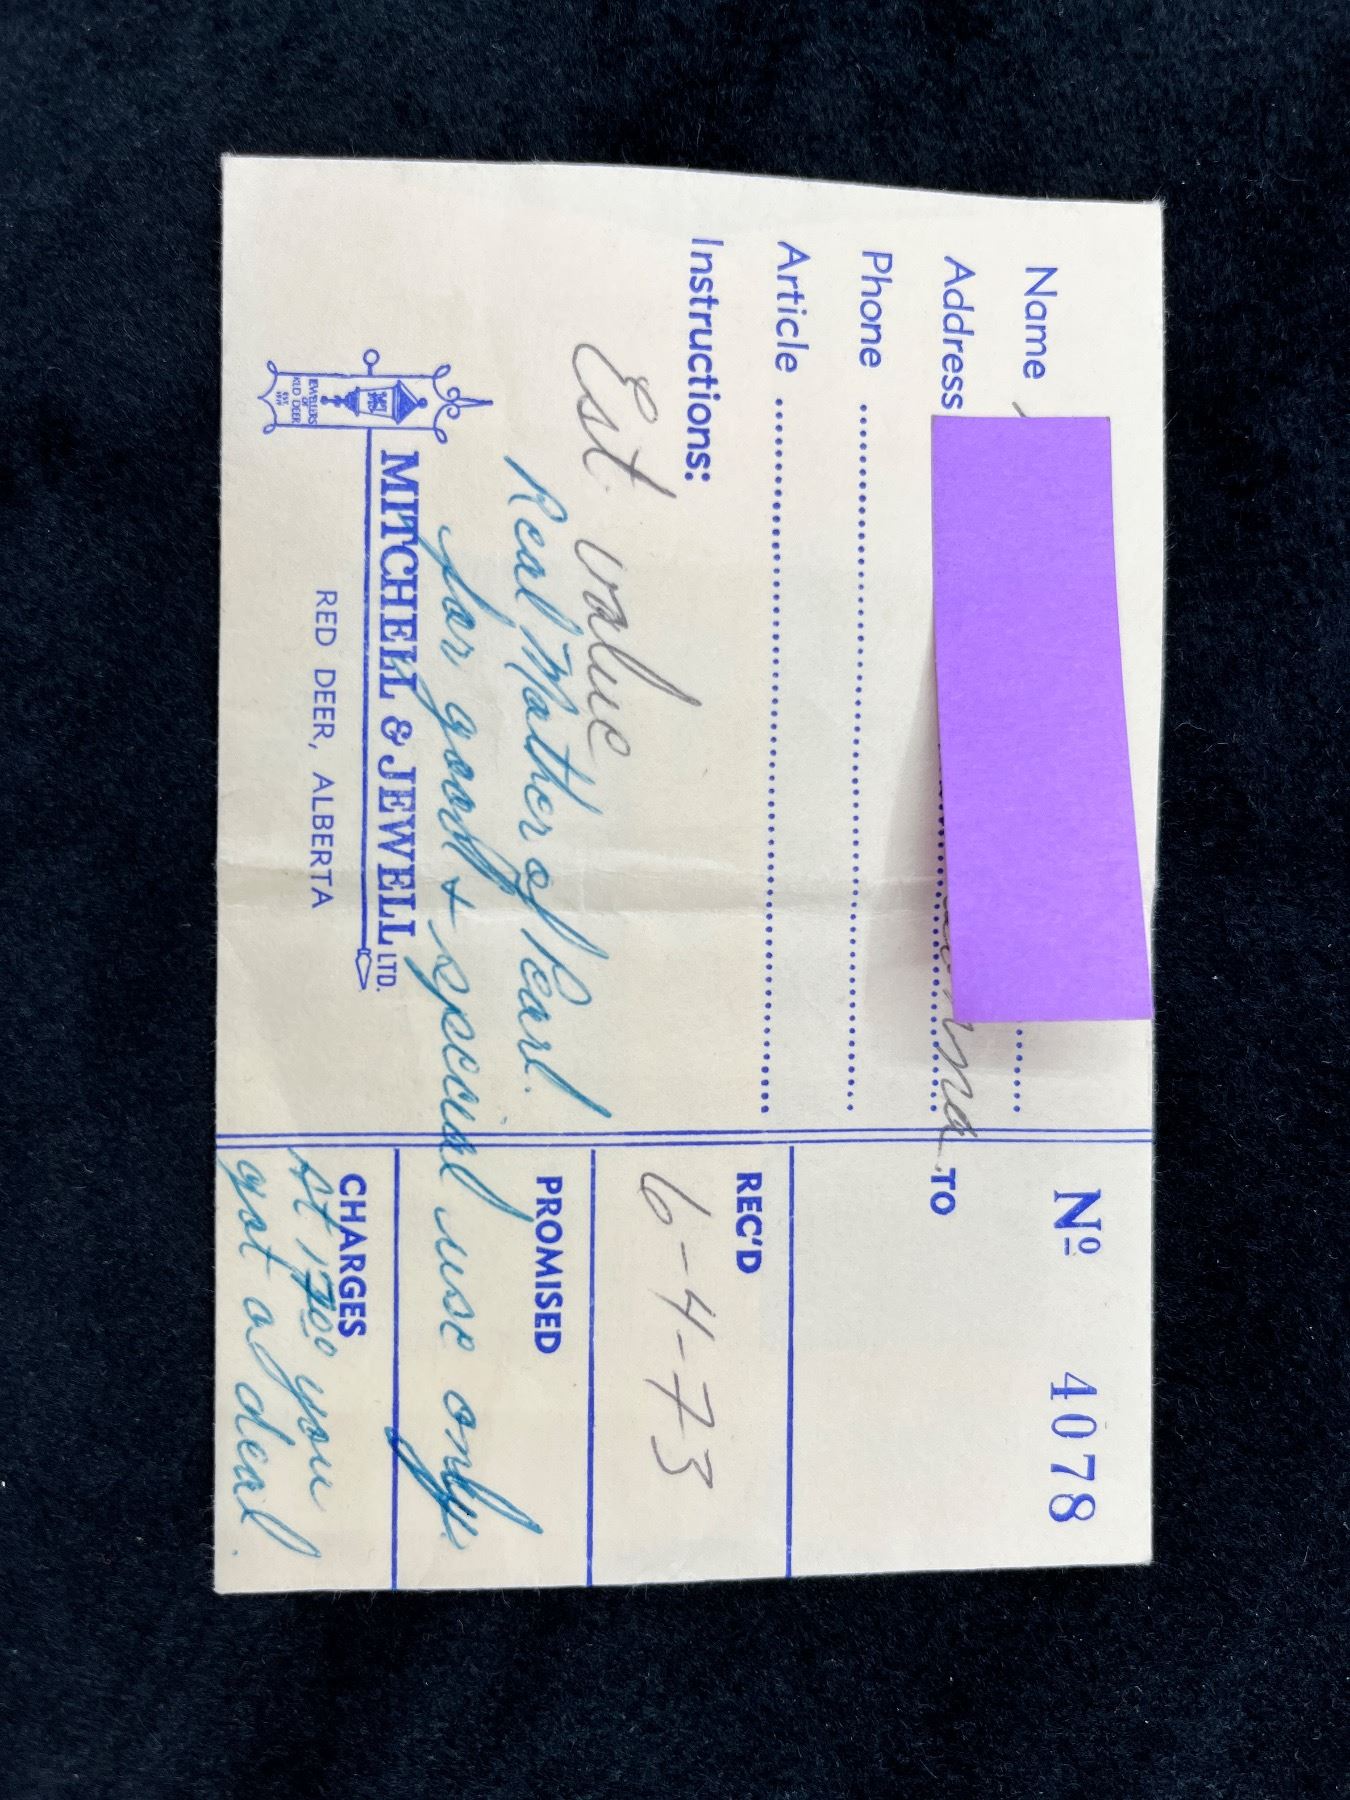 Name
Nº 4078
Address
TO
Phone
Article
REC'D
6-4-73
Instructions:
Est. value
Real Mother of Pearl.
PROMISED
for good + special use only.
MITCHELL & JEWELL LTD.
RED DEER, ALBERTA
JEWELLERS
OF
RED DEER
CHARGES
At 1700 you
got a deal.